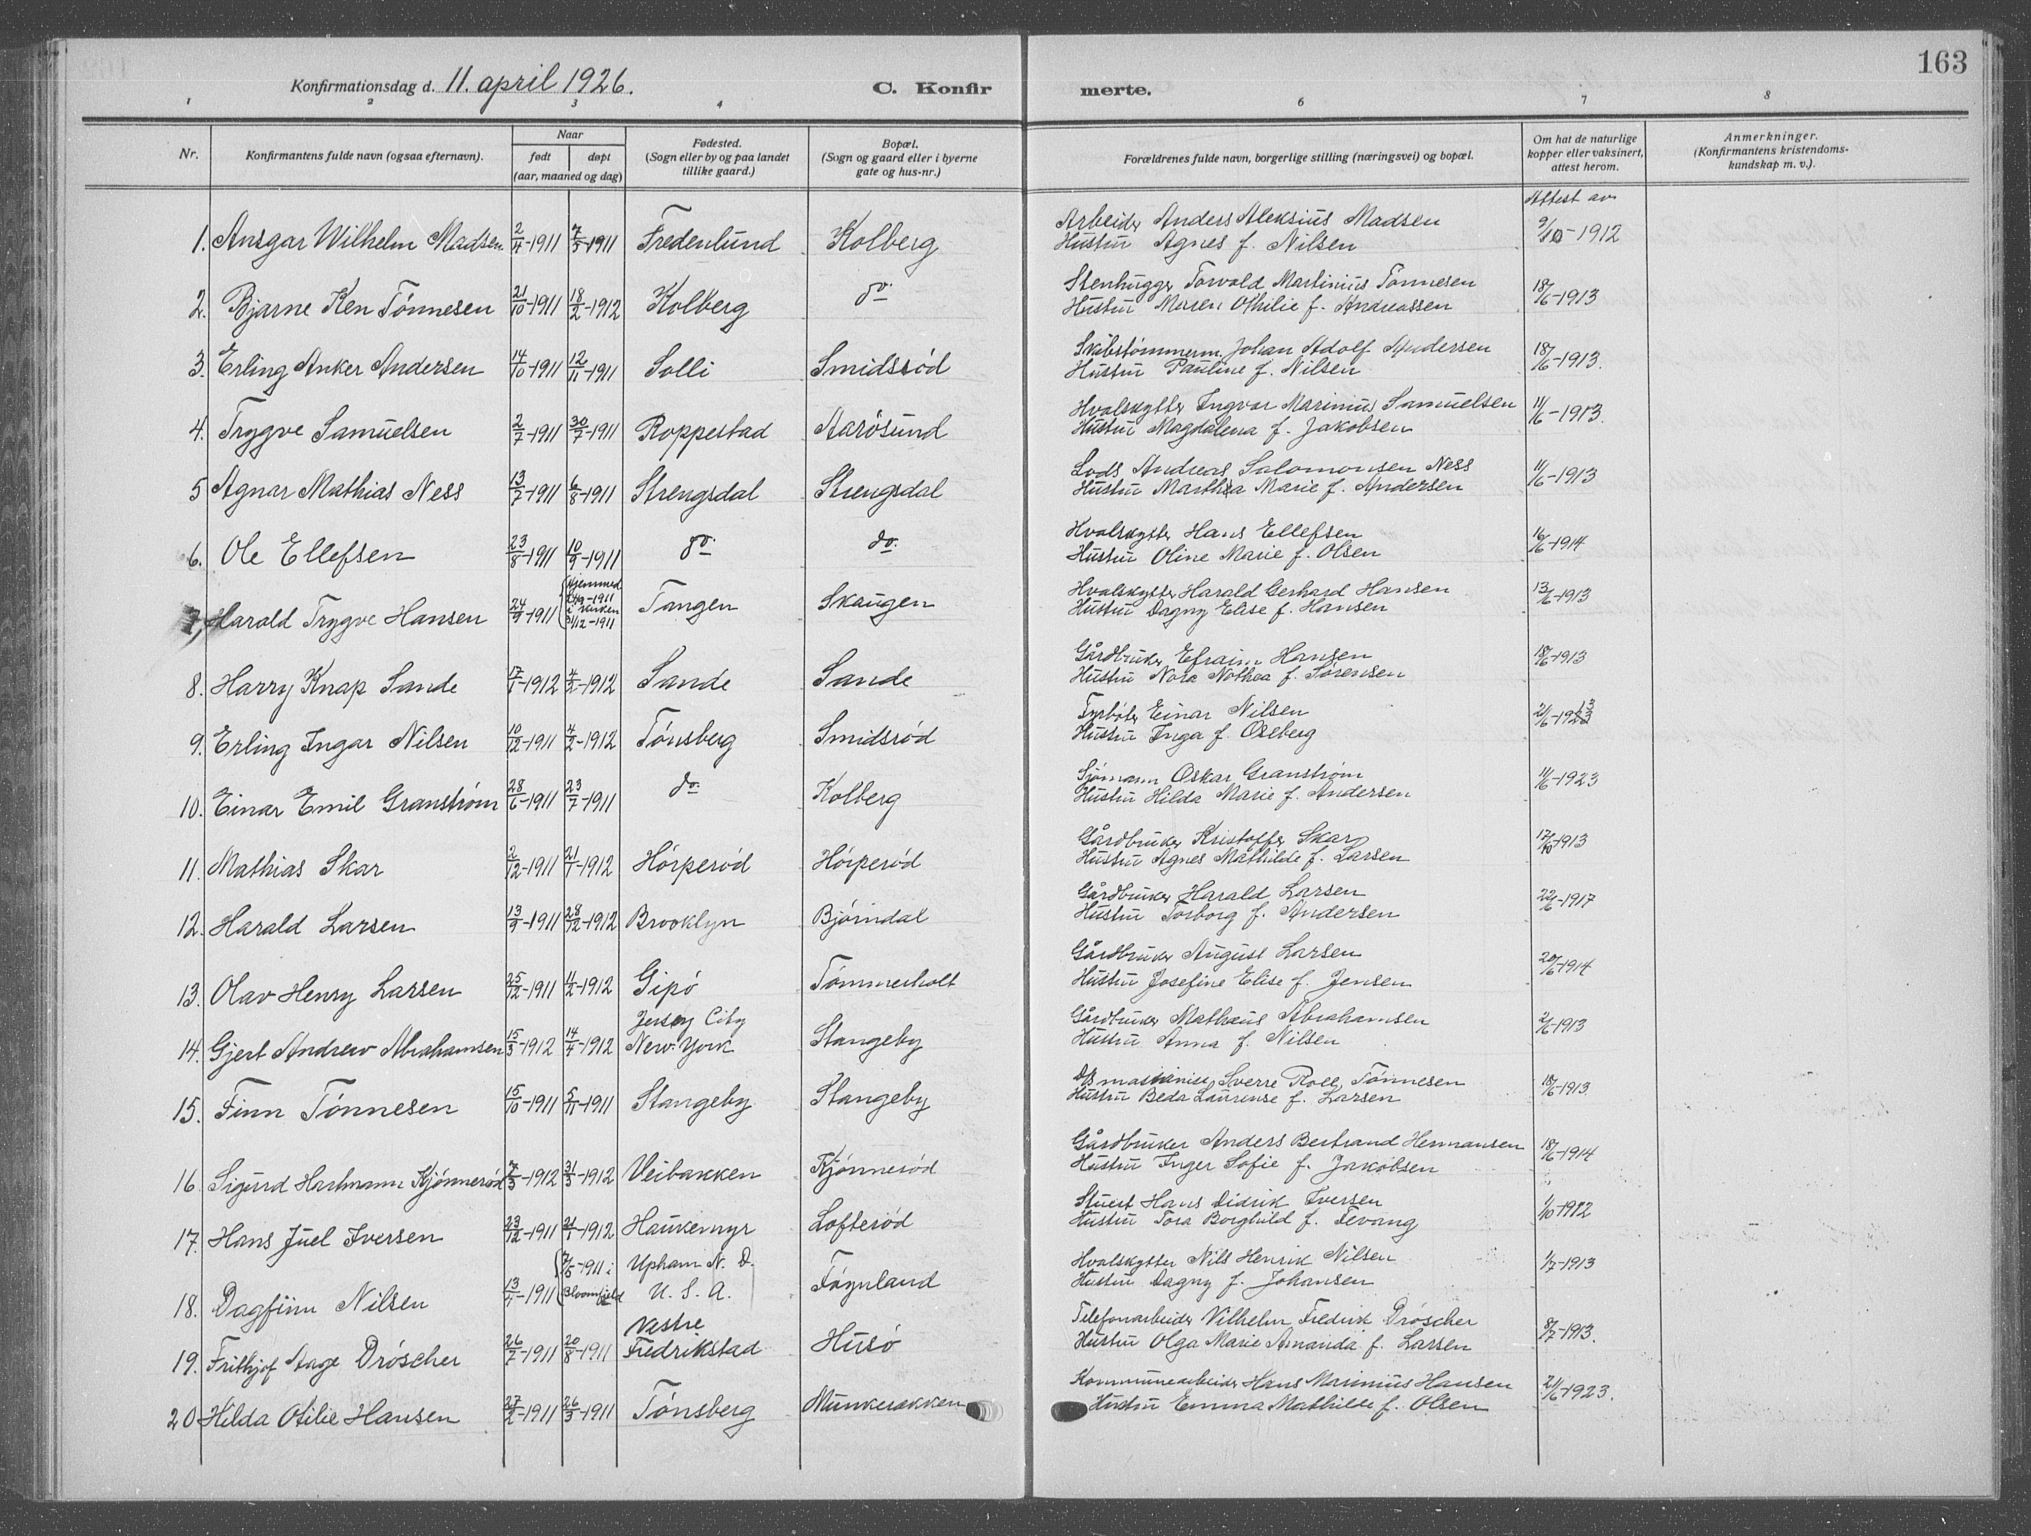 163
Konfirmationsdag d. 11. april 1926.
C. Konfir merte.
1 2 3 4 6 7 8
Nr. Konfirmantens fulde navn (ogsaa efternavn). Naar født døpt (aar, maaned og dag) Fødested. (Sogn eller by og paa landet tillike gaard.) Bopæl. (Sogn og gaard eller i byerne gate og hus-nr.) Forældrenes fulde navn, borgerlige stilling (næringsvei) og bopæl. Om hat de naturlige kopper eller vaksinert, attest herom. Anmerkninger. (Konfirmantens kristendoms-kundskap m. v.).
Attest av
1. Ansgar Wilhelm Madsen 2/4-1911 7/5-1911 Fredenlund Kolberg Arbeider Anders Aleksius Madsen 9/10-1912
Hustru Agnes f. Nilsen
2. Bjarne Ken Tønnesen 21/10-1911 18/2-1912 Kolberg do. Stenhugger Torvald Martinius Tønnesen 18/6-1913
Hustru Maren Othilie f. Andreassen
3. Erling Anker Andersen 14/10-1911 12/11-1911 Solli Smidsrød Skibstømmerm. Johan Adolf Andersen 18/6-1913.
Hustru Pauline f. Nilsen
4. Trygve Samuelsen 2/7-1911 30/7-1911 Roppestad Aarøsund Hvalskytter Ingvar Marinius Samuelsen 11/6-1913.
Hustru Magdalena f. Jakobsen
5 Agnar Mathias Ness 13/7-1911 6/8-1911 Strengsdal Strengsdal Lods Andreas Salomonsen Ness 11/6-1913
Hustru Marthea Marie f. Andersen
6. Ole Ellefsen 23/8-1911 10/9-1911 do. do. Hvalskytter Hans Ellefsen 16/6-1914
Hustru Oline Marie f. Olsen
7, Harald Trygve Hansen 24/9-1911 (Hjemmed 24/9-1911 i kirken 31/12-1911 Tangen Skaugen Hvalskytter Harald Gerhard Hansen 13/6-1913
Hustru Dagny Elise f. Hansen
8. Harry Knap Sande 17/1-1912 4/2-1912 Sande Sande Gårdbruker Efraim Hansen 18/6-1913
Hustru Nora Nathea f. Sørensen
9. Erling Ingar Nilsen 10/12-1911 4/2-1912 Tønsberg Smidsrød Fyrbøter Einar Nilsen 21/6-1913
Hustru Inga f. Oseberg
10. Einar Emil Granstrøm 28/6-1911 23/7-1911 do. Kolberg Sjømann Oskar Granstrøm 11/6-1923
Hustru Hilda Marie f. Andersen
11. Mathias Skar 2/12-1911 21/1-1912 Hørperød Hørperød Gårdbruker Kristoffer Skar 17/10-1913
Hustru Agnes Mathilde f. Larsen
12. Harald Larsen 13/9-1911 28/12-1912 Brooklyn Bjørndal Gårdbruker Harald Larsen 22/6-1917
Hustru Torborg f. Andersen
13. Olav Henry Larsen 25/12-1911 11/2-1912 Gipø Tømmerholt Gårdbruker August Larsen 20/6-1914
Hustru Josefine Elise f. Jensen
14. Gjert Andrew Abrahamsen 15/3-1912 14/4-1912 Jersey City New-York Stangeby Gårdbruker Matheus Abrahamsen 2/6-1913
Hustru Anna f. Nilsen
15. Finn Tønnesen 15/10-1911 5/11-1911 Stangeby Stangeby D/S maskinist Sverre Roll Tønnesen 18/6-1913
Hustru Beda Laurense f. Larsen
16. Sigurd Hartmann Kjønnerød 7/3-1912 31/3-1912 Veibakken Kjønnerød Gårdbruker Anders Bertrand Hermansen 18/6-1914
Hustru Inger Sofie f. Jakobsen
17. Hans Juel Iversen 23/12-1911 21/1-1912 Haukemyr Lofterød Stuert Hans Didrik Iversen 1/10-1912
Hustru Tora Borghild f. Tevang
18. Dagfinn Nilsen 13/1-1911 (7/5-1911 i Bloomfield Upham N. D. U. S. A. Føynland Hvalskytter Nils Henrik Nilsen 1/7-1913
Hustru Dagny f. Johansen
19. Frithjof Aage Drøscher 26/7-1911 20/8-1911 Vestre Fredrikstad Husø Telefonarbeider Vilhelm Fredrik Drøscher 8/7-1913.
Hustru Olga Marie Amanda f. Larsen
20 Hilda Otilie Hansen 27/2-1911 26/3-1911 Tønsberg Munkerekken Kommunearbeider Hans Marinius Hansen 21/6-1923.
Hustru Emma Mathilde f. Olsen